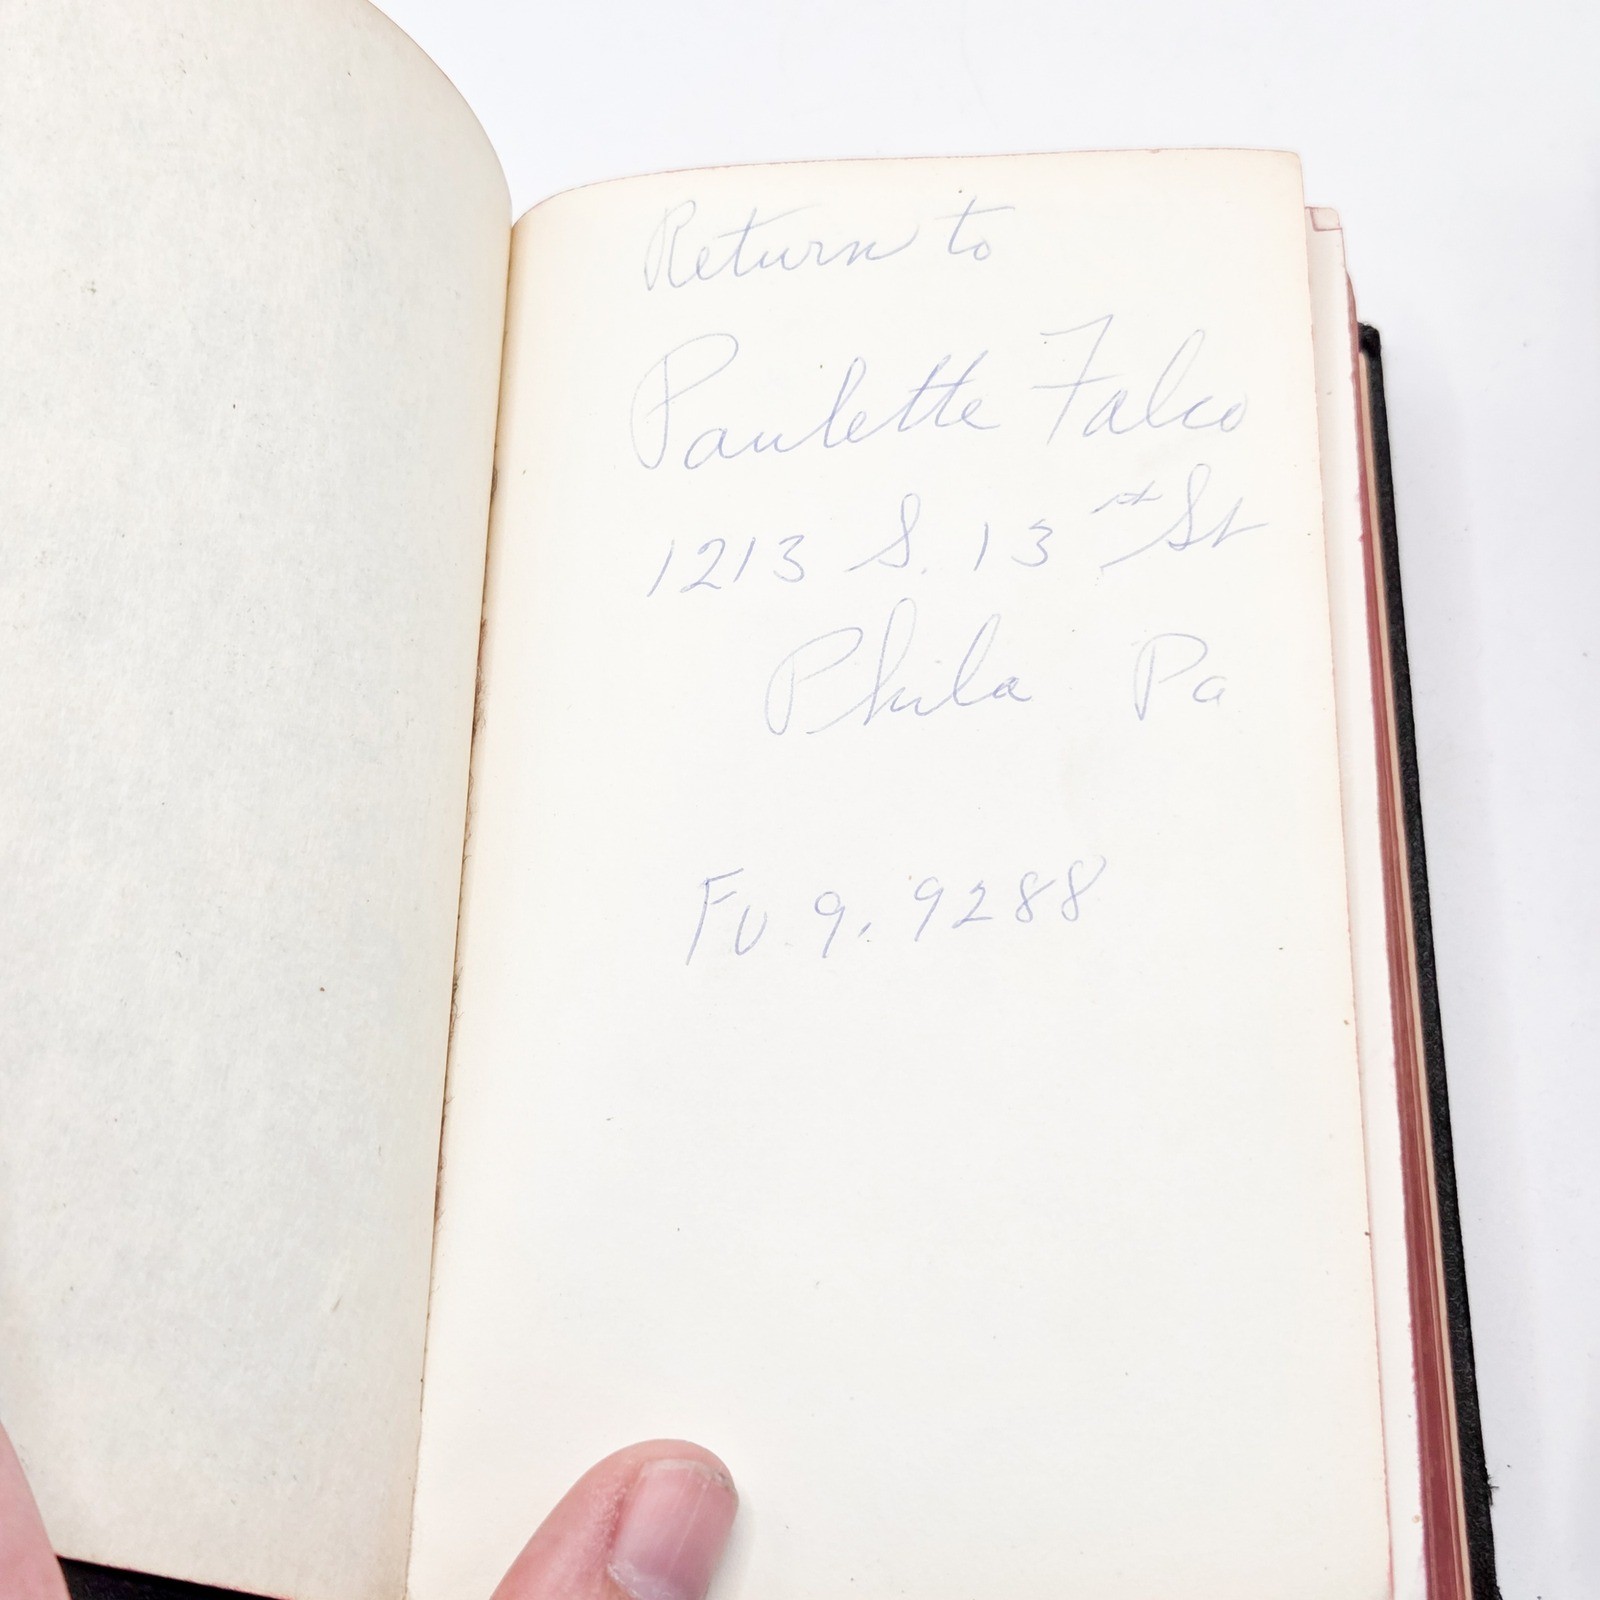 Return to
Paulette Falco
1213 S. 13 St
Phila Pa
FU 9. 9288